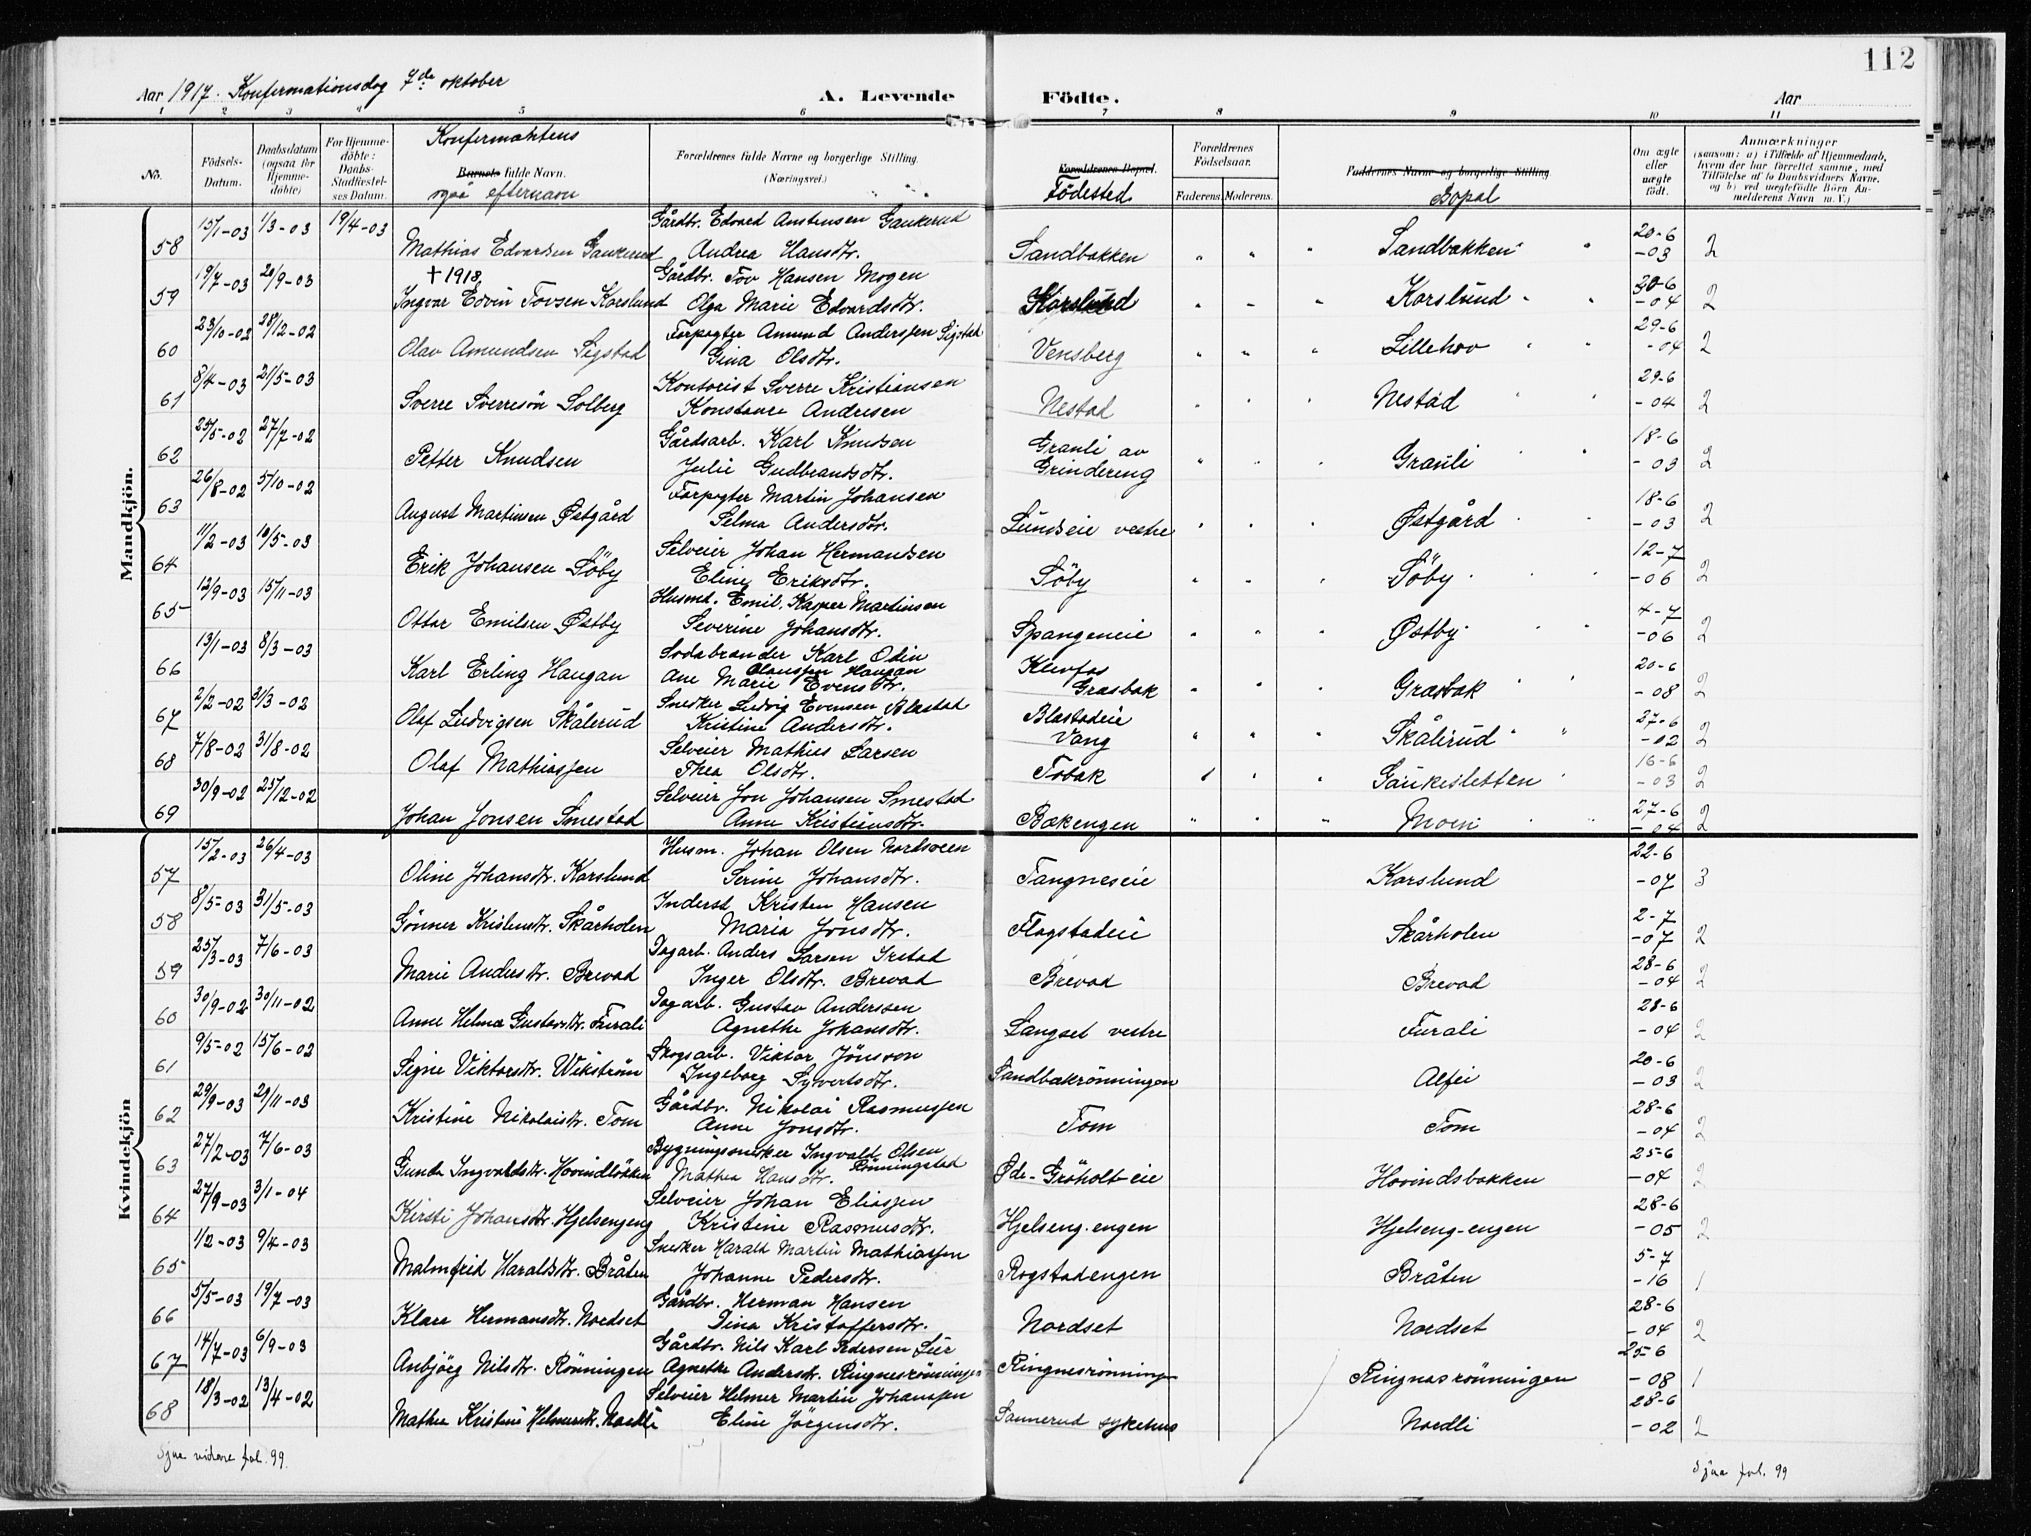 112
Aar 1917. Konfermationsdag 7de oktober
A. Levende Födte.
Aar
1 2 3 4 5 6 7 8 9 10 11
No.
Födsels-Datum.
Daabsdatum (ogsaa for Hjemme-döbte)
For Hjemme-döbte: Daabs-Stadfæstel-ses Datum.
Konfermantens
Barnets fulde Navn.
også efternavn
Forældrenes fulde Navne og borgerlige Stilling.
(Næringsvei.)
Forældrenes Bopæl.
Födested
Forældrenes Födselsaar.
Faderens. Moderens.
Faddernes Navne og borgerlige Stilling
Bopæl
Om ægte eller uægte födt.
Anmærkninger
(saasom: a) i Tilfælde af Hjemmedaab, hvem der har forrettet samme, med Tilföielse af to Daabsvidners Navne, og b) ved uægtefödte Börn An-melderens Navn m. V.)
Mandkjön.
58 15/1-03 1/3-03 19/4-03 Mathias Edvardsen Gaukerud Gårdbr. Edvard Amstensen Gaukerud
Andrea Hansdtr. Sandbakken " " " Sandbakken " 20-6 -03 2
59 19/7-03 20/9-03 † 1918 Gårdbr. Tov Hansen Mogen
Ingvar Edvin Tovsen Korslund Olga Marie Edvardsdtr. Korslund " " " Korslund " " 30-6 -04 2
60 23/10-02 28/12-02 Olav Amundsen Sigstad Forpagter Amund Anderssen Sigstad
Gina Olsdtr. Vensberg " " " Lillehov " " 29-6 -04 2
61 8/4-03 21/5-03 Sverre Sverresön Solberg Kontorist Sverre Kristiansen
Konstance Andresen Nestad " " " Nestad " " 29-6 -04 2
62 25/5-02 27/7-02 Petter Knudsen Gårdsarb. Karl Knudsen
Julie Gudbrandsdtr. Granli av Grindereng " " " Granli " " 18-6 -03 2
63 26/8-02 5/10-02 August Martinsen Østgård Forpagter Martin Johansen
Selma Andersdtr. Lundseie vestre " " " Østgård " " 18-6 -03 2
64 11/2-03 10/5-03 Erik Johansen Söby Selveier Johan Hermandsen
Eline Eriksdtr. Söby " " " Söby " " 12-7 -06 2
65 12/9-03 15/11-03 Ottar Emilsen Østby Husmd. Emil Kasper Martinsen
Severine Johansdtr. Spangeneie " " " Østby " " 4-7 -06 2
66 13/1-03 8/3-03 Karl Erling Haugan Karl Odin
Olaussen Haugan
Ane Marie Evensdtr. Klevfos Græsbak " " " Græsbak " " 20-6 -08 2
67 2/2-02 31/3-02 Olaf Ludvigsen Skålerud Snedker Ludvig Evensen Blæstad
Kristine Andersdtr. Blæstadeie Vang " " " Skålerud " " 27-6 -02 2
68 7/8-02 31/8-02 Olaf Mathiassen Selveier Mathias Larsen
Thea Olsdtr. Tobak " " " Gaukesletten " 16-6 -03 2
69 30/9-02 25/12-02 Johan Jonsen Smestad Selveier Jon Johansen Smestad
Anne Kristiansdtr. Bækengen " " " Moen " " 27-6 -04 2
Kvindekjön
57 15/2-03 26/4-03 Oline Johansdtr. Korslund Husm. Johan Olsen Nordsveen
Serine Johansdtr. Tangneseie Korslund 22-6 -07 3
58 8/5-03 31/5-03 Gunner Kristensdtr. Skårholen Inderst Kristen Hansen
Maria Jonsdtr. Flagstadeie Skårholen 2-7 -07 2
59 25/3-03 7/6-03 Marie Andersdtr. Brevad Dagarb. Anders Larsen
Inger Olsdtr. Brevad Brevad Brevad 28-6 -04 2
60 30/9-02 30/11-02 Anne Helma Gustavsdtr. Furali Dagarb. Gustav Anderssen
Agnethe Johansdtr. Langset vestre Furali 28-6 -04 2
61 9/5-02 15/6-02 Signe Viktorsdtr. Wikström Skogsarb. Viktor Jönsson
Ingeborg Syvertsdtr. Sandbakrönningen Alfei 20-6 -03 2
62 29/9-03 29/11-03 Kristine Nikolaisdtr. Tom Gårdbr. Nikolai Rasmussen
Anne Jonsdtr. Tom Tom 28-6 -04 2
63 27/2-03 7/6-03 Gunda Ingvaldsdtr. Hovindbakken Bygningssnedker Ingvald Olsen
Rönningstad
Mathea Hansdtr. Øde-Gröholt-eie Hovindsbakken 25-6 -04 2
64 27/9-03 3/1-04 Kirsti Johansdtr. Hjelsengeng Selveier Johan Eliassen
Kristine Rasmusdtr. Hjelseng-engen Hjelseng-engen 28-6 -05 2
65 1/2-03 9/4-03 Malmfrid Haraldsdtr. Bråten Snedker Harald Martin Mathiassen
Johanne Pedersdtr. Rogstadengen Bråten 5-7 -16 1
66 5/5-03 19/7-03 Klara Hermansdtr. Nordset Gårdbr. Herman Hansen
Dina Kristoffersdtr. Nordset Nordset 28-6 -04 2
67 14/7-03 6/9-03 Anbjörg Nilsdtr. Rönningen Gårdbr. Nils Karl Pedersen Lier
Agnethe Andersdtr. Ringnesrönningen Ringnesrönningen Ringnesrönningen 25-6 -08 1
68 18/3-02 13/4-02 Mathea Kristine Helmersdtr. Nordli Selveier Helmer Martin Johanssen
Eline Jörgensdtr. Sannerud sykehus Nordli 28-6 -02 2
Sjaa videre fol. 99.
Sjaa fol. 99